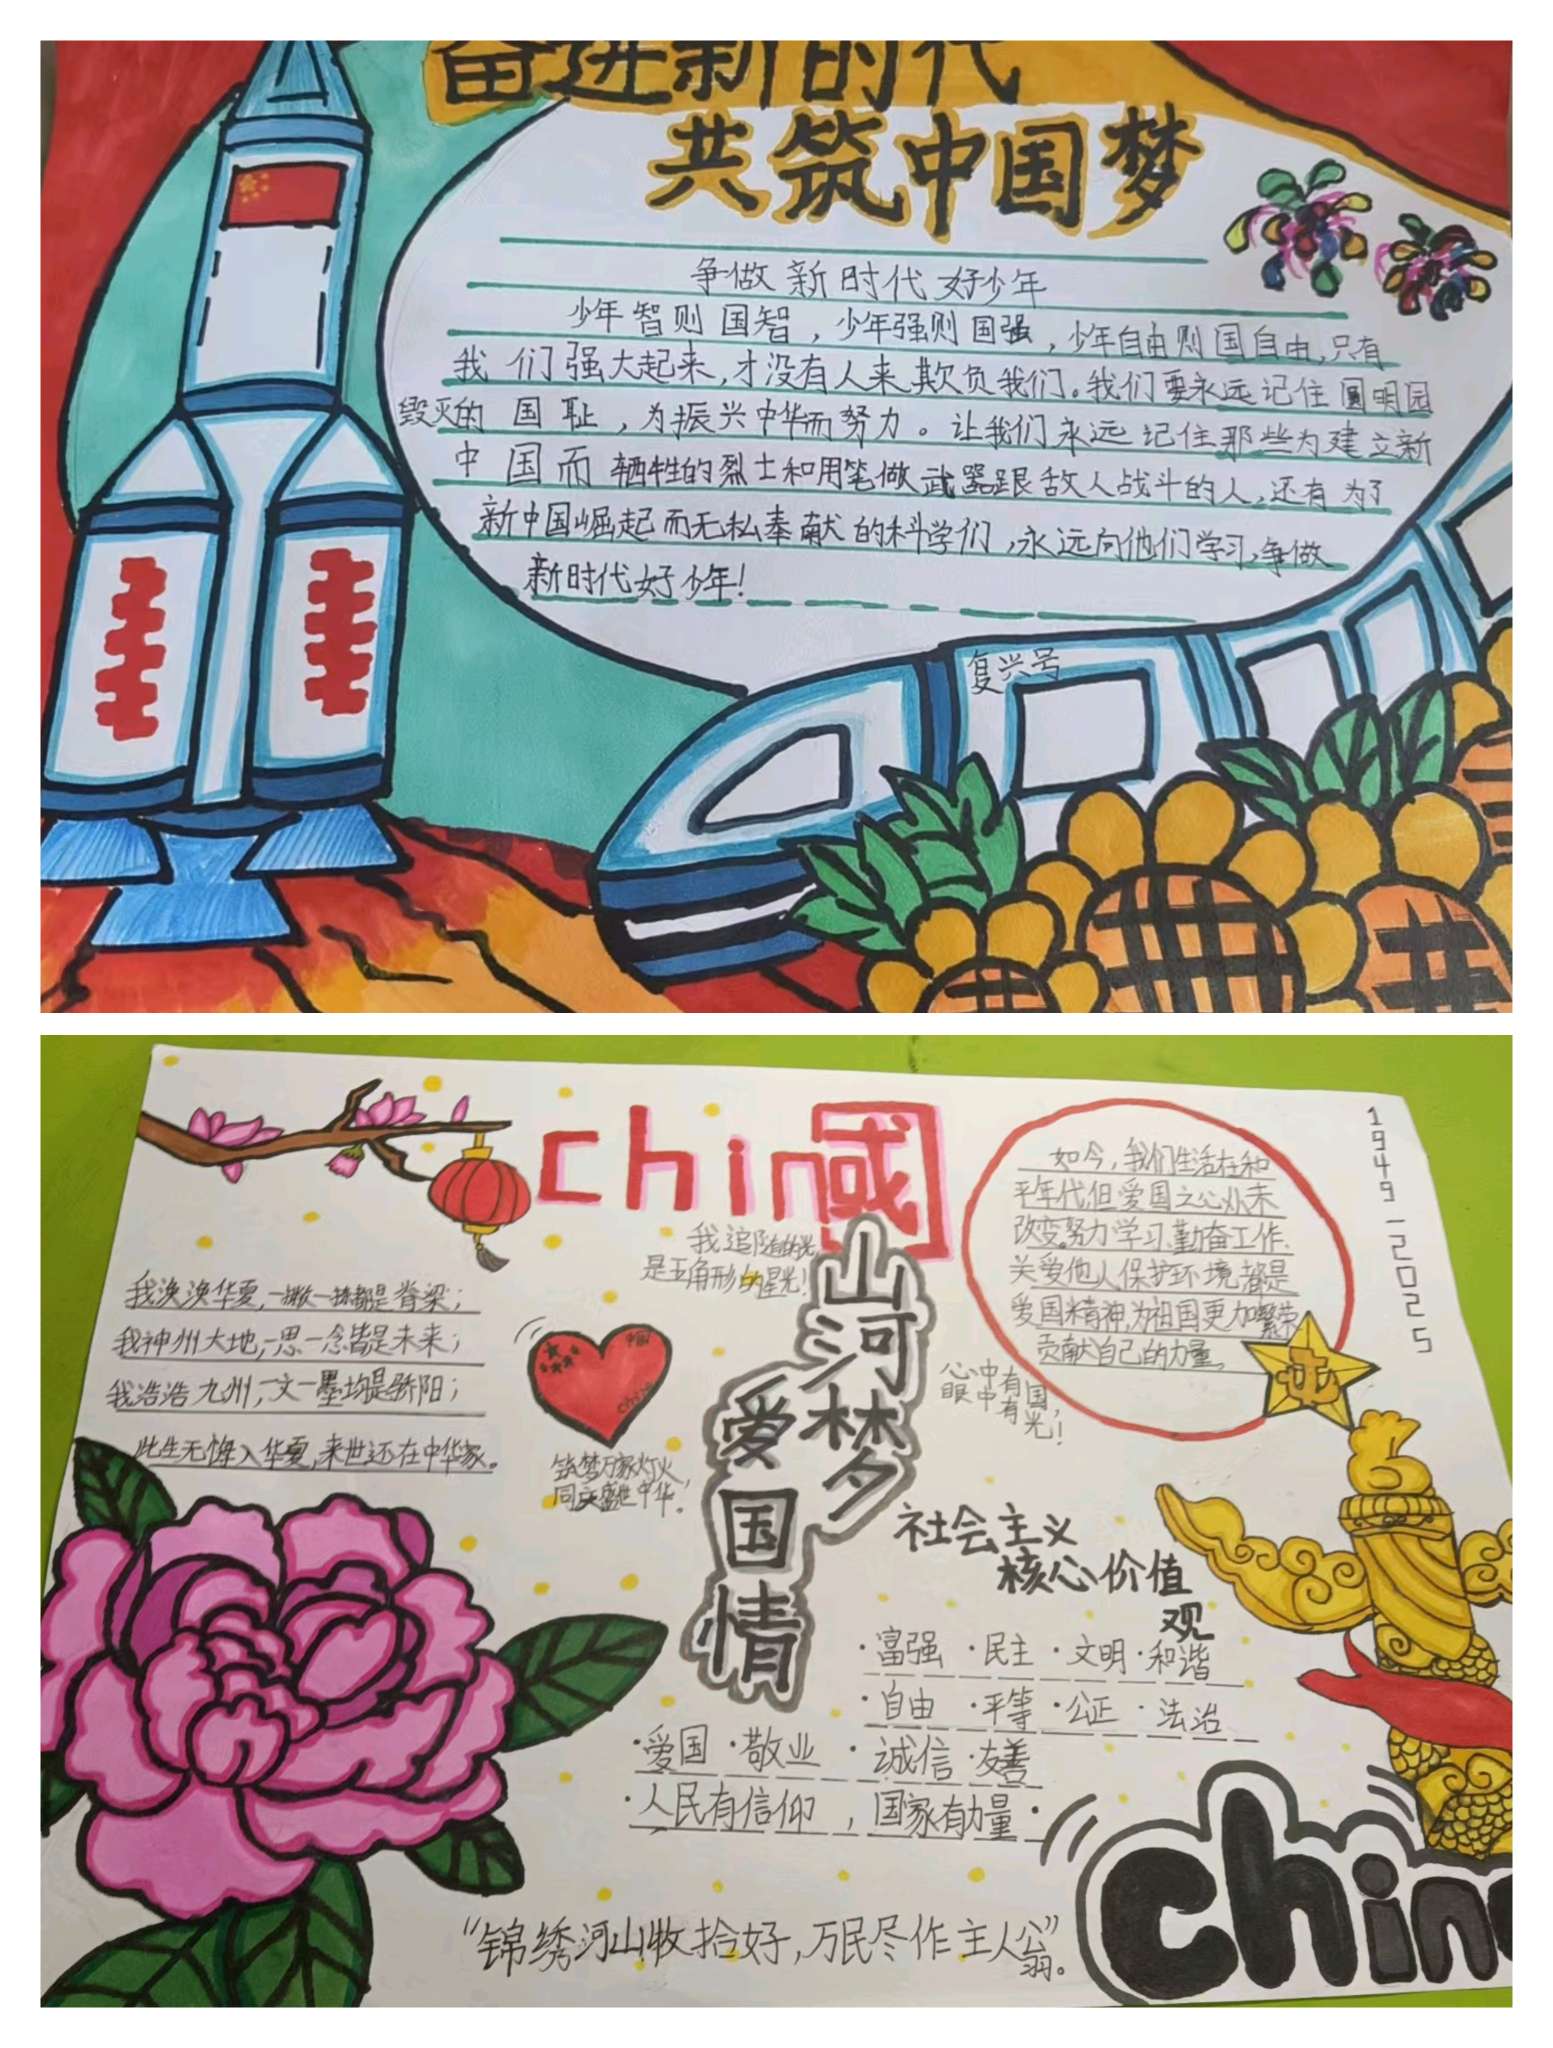 奋进新时代
共筑中国梦
争做新时代好少年
少年智则国智，少年强则国强，少年自由则国自由，只有
我们强大起来，才没有人来欺负我们。我们要永远记住圆明园
毁灭的国耻，为振兴中华而努力。让我们永远记住那些为建立新
中国而牺牲的烈士和用笔做武器跟敌人战斗的人，还有为了
新中国崛起而无私奉献的科学们，永远向他们学习，争做
新时代好少年！
复兴号
chin國
1949-2025
如今，我们生活在和
平年代，但爱国之心从未
改变。努力学习、勤奋工作、
关爱他人保护环境，都是
爱国精神，为祖国更加繁荣
贡献自己的力量。
我追随的光，
是五角形的星光！
我泱泱华夏，一撇一捺都是脊梁；
我神州大地，一思一念皆是未来；
我浩浩九州，一文一墨均是骄阳；
此生无悔入华夏，来世还在中华家。
中国
China
筑梦万家灯火，
同庆盛世中华！
山河梦
爱国情
心中有国，
眼中有光！
社会主义
核心价值
观
·富强 ·民主 ·文明 ·和谐
·自由 ·平等 ·公正 ·法治
·爱国 ·敬业 ·诚信 ·友善
·人民有信仰，国家有力量·
“锦绣河山收拾好，万民尽作主人翁”。
Chin